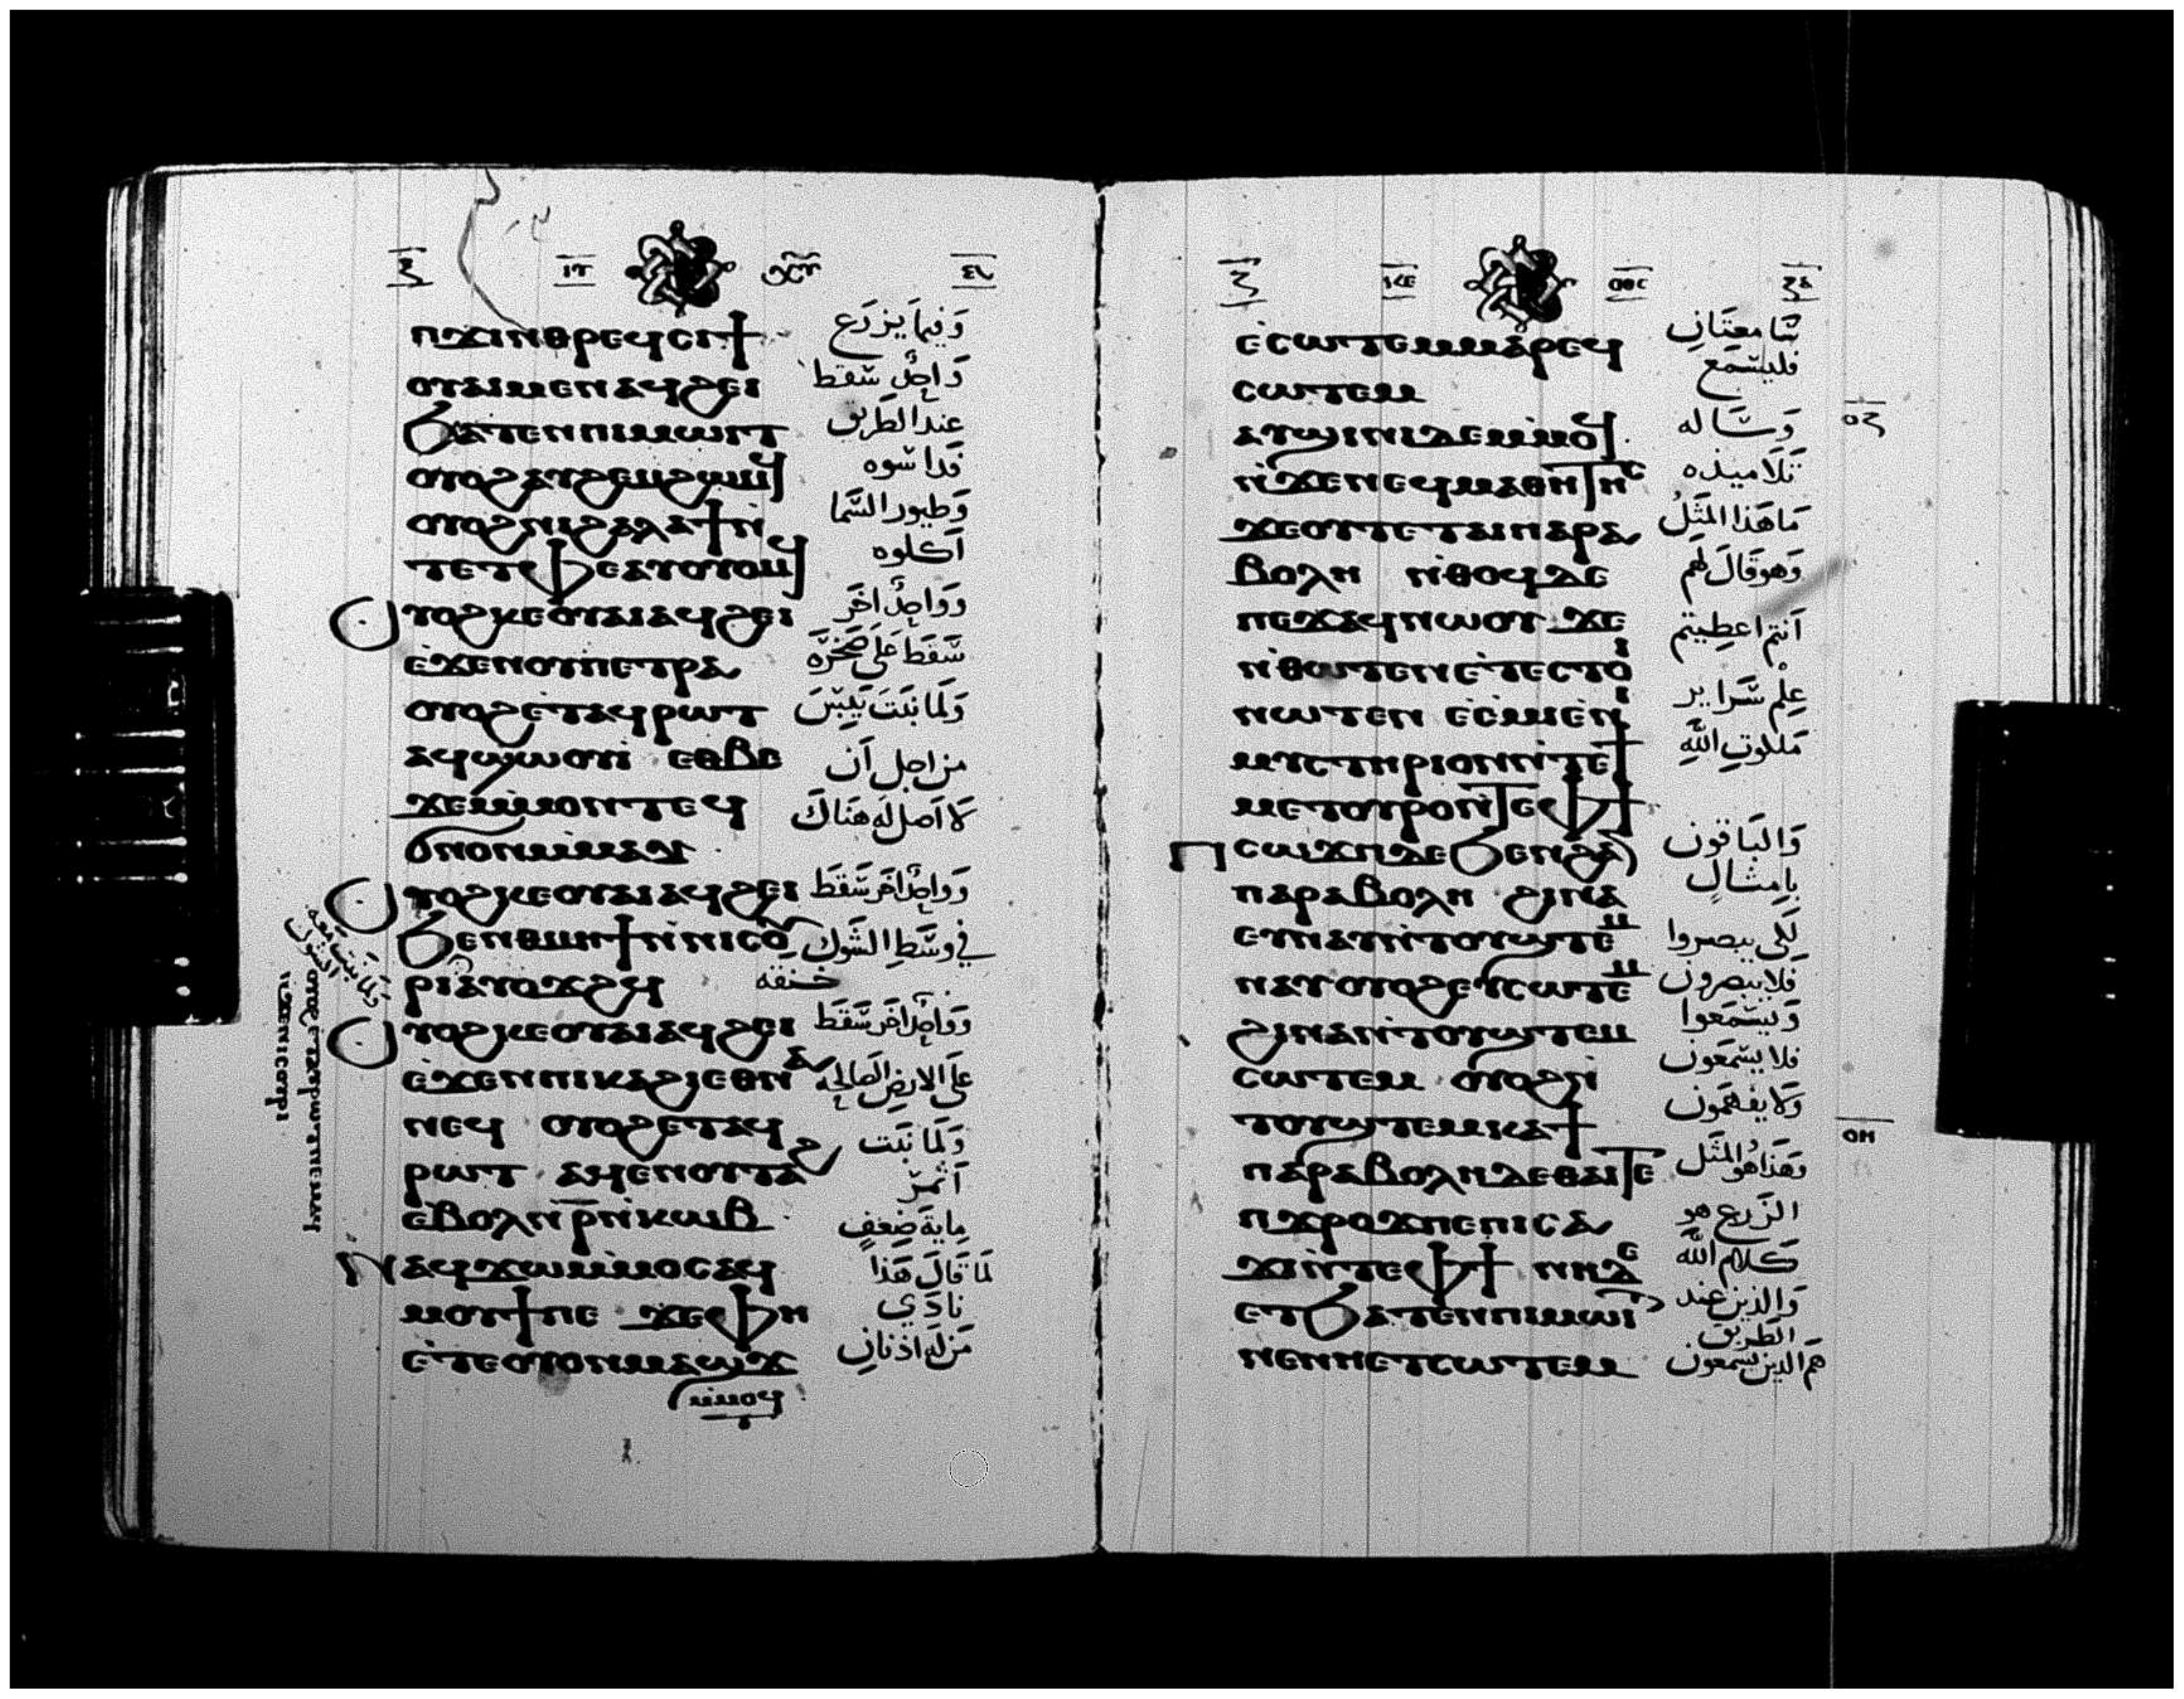 ⲡϫⲓⲛⲑⲣⲉϥⲥⲓϯ وَفيمَا يَزرَع
ⲟⲩⲁⲓⲙⲉⲛⲁϥϩⲉⲓ وَاحِدٌ سَقط
ϧⲁⲧⲉⲛⲡⲓⲙⲱⲓⲧ عند الطَريق
ⲟⲩⲟϩⲁⲩϩⲉⲙϩⲱⲙϥ فَداسوه
ⲟⲩⲟϩⲛⲓϩⲁⲗⲁϯⲛ̀ وَطيور السَّما
ⲧⲉⲧⲫⲉⲁⲩⲟⲩⲟⲙϥ اَكلوه
ⲟⲩⲟϩⲕⲉⲟⲩⲁⲓⲁϥϩⲉⲓ وَوَاحِدٌ اخَر
ⲉ̀ϫⲉⲛⲟⲩⲡⲉⲧⲣⲁ سَّقَطَ عَلَى صَخْرَه
ⲟⲩⲟϩⲉ̀ⲧⲁϥⲣⲱⲧ وَلَمَا نبَتَ يَبِسَ
ⲁϥϣⲱⲟⲩⲓ̀ ⲉⲑⲃⲉ من اجل اَن
ϫⲉⲙ̀ⲙⲟⲛⲧⲉϥ لَا اَصل لَه هنَاكَ
ϭⲛⲟⲛⲙ̀ⲙⲁⲩ
ⲟⲩⲟϩⲕⲉⲟⲩⲁⲓⲁϥϩⲉⲓ وَوَاحِدٌ اخَر سَّقَطَ
ϧⲉⲛⲑⲙⲏϯⲛ̀ⲛⲓⲥⲟⲩ في وسَّطِ الشَوك
ⲣⲓⲁⲩⲟϫϩϥ خنقه
ⲟⲩⲟϩⲕⲉⲟⲩⲁⲓⲁϥϩⲉⲓ وَوَاحِدٌ اخَر سَّقَطَ
ⲉ̀ϫⲉⲛⲡⲓⲕⲁϩⲓⲉⲑⲛⲁ عَلَى الارض الصَالحِه
ⲛⲉϥ ⲟⲩⲟϩⲉⲧⲁϥ وَلَمَا نَبَت
ⲣⲱⲧ ⲁϥⲉⲛⲟⲩⲧⲁϩ اَثمَرَ
ⲉ̀ⲃⲟⲗⲛ̅ⲣ̅ⲛ̀ⲕⲱⲃ مِايةَ ضِعفٍ
ⲛⲁϥϫⲱⲙ̀ⲙⲟⲥⲁϥ لَمَا قَالَ هَذا
ⲙⲟⲩϯⲡⲉ ϫⲉⲫⲏ نادَي
ⲉ̀ⲧⲉⲟⲩⲟⲛⲙⲁϣϫ مَن لَه اذنانِ
ⲙ̀ⲙⲟϥ
وَلَمَا نبَتَ مَعَه الشوك
ⲟⲩⲟϩⲉⲧⲁⲩⲣⲱⲧⲛⲉⲙⲁϥ
ⲛ̀ϫⲉⲛⲓⲥⲟⲩⲣⲓ
ⲉ̀ⲥⲱⲧⲉⲙⲙⲁⲣⲉϥ سَّامِعتَانِ
ⲥⲱⲧⲉⲙ فليسَّمَع
ⲁⲩϣⲓⲛⲓⲇⲉⲙ̀ⲙⲟϥ وَسَّاله
ⲛ̀ϫⲉⲛⲉϥⲙⲁⲑⲏⲧⲏⲥ تَلَاميذه
ϫⲉⲟⲩⲧⲉⲧⲁⲓⲡⲁⲣⲁ مَا هَذا المَثَلُ
ⲃⲟⲗⲏ ⲛ̀ⲑⲟϥⲇⲉ وَهو قَالَ لَهم
ⲡⲉϫⲁϥⲛⲱⲟⲩ ϫⲉ
ⲛ̀ⲑⲱⲧⲉⲛⲉ̀ⲧⲉⲥⲧⲟⲓ اَنتم اعطِيتم
ⲛⲱⲧⲉⲛ ⲉ̀ⲉ̀ⲙⲓⲉ̀ⲛⲓ عِلْم سَّرَاير
ⲙⲩⲥⲧⲏⲣⲓⲟⲛⲛ̀ⲧⲉϯ مَلكوتِ اللهِ
ⲙⲉⲧⲟⲩⲣⲟⲛ̀ⲧⲉⲫϯ
ⲡⲥⲱϫⲡⲇⲉϧⲉⲛϩⲁⲛ وَالبَاقون
ⲡⲁⲣⲁⲃⲟⲗⲏ ϩⲓⲛⲁ بامِثَالٍ
ⲉⲩⲛⲁⲩⲛ̀ⲧⲟⲩϣⲧⲉⲙ لِكَى يبصروا
ⲛⲁⲩⲟⲩⲟϩⲉⲩⲥⲱⲧⲉⲙ فلا يبصرون
ϩⲓⲛⲁⲛ̀ⲧⲟⲩϣⲧⲉⲙ وَيسَّمَعوا
ⲥⲱⲧⲉⲙ ⲟⲩⲟϩⲛ̀ فلا يسَّمَعون
ⲧⲟⲩϣⲧⲉⲙⲕⲁϯ وَلَا يفهَمون
ⲡⲁⲣⲁⲃⲟⲗⲏⲇⲉⲑⲁⲓⲧⲉ وَهَذا هُو المَثَل
ⲡϫⲣⲟϫⲡⲉⲡⲓⲥⲁ الزَرع هو
ϫⲓⲛ̀ⲧⲉⲫϯ ⲛⲏⲇⲉ كَلام الله
ⲉⲧϧⲁⲧⲉⲛⲡⲓⲙⲱⲓⲧ وَالذين عند الطريق
ⲛⲉⲛⲏⲉⲧⲥⲱⲧⲉⲙ هم الذين يسمعون